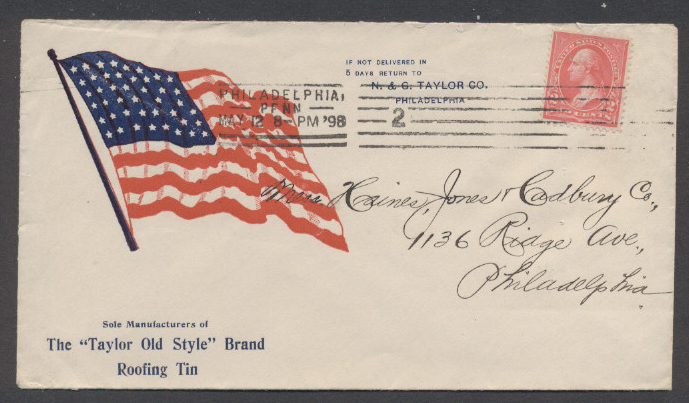 IF NOT DELIVERED IN
5 DAYS RETURN TO
N. & G. TAYLOR CO.
PHILADELPHIA
PHILADELPHIA,
PENN
MAY 12 8-PM '98
2
Haines, Jones & Cadbury Co.,
1136 Ridge Ave.,
Philadelphia
Sole Manufacturers of
The "Taylor Old Style" Brand
Roofing Tin